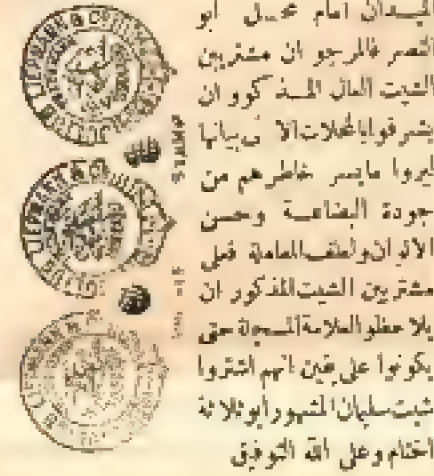 الميدان امام محل ابو
النصر فالمرجو ان مشتريين
الشيت العال المذكور ان
يشرفوا بالمحلات الآتى بيانها
ليروا مايسر خاطرهم من
جودة البضاعة وحسن
الالوان ولطف المعاملة فعلى
مشتريين الشيت المذكور ان
يلاحظوا العلامة المسجلة حتى
يكونوا على يقين انهم اشتروا
شيت سليمان المشهور ابو ثلاثة
اختام وعلى الله التوفيق
LIEPMANN &
LIEPMANN &
LIEPMANN &